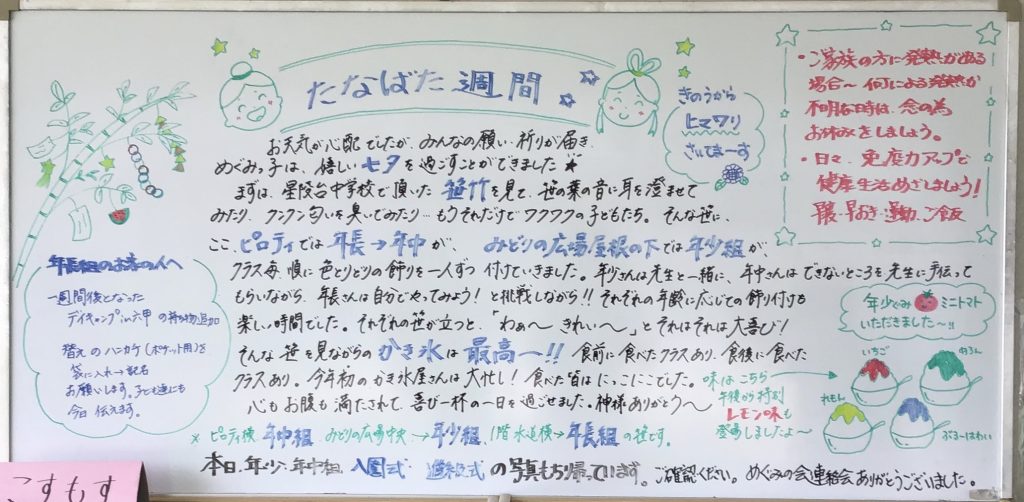 たなばた週間
お天気が心配でしたが、みんなの願い・祈りが届き、
めぐみっ子は、嬉しい七夕を過ごすことができました
まずは、星陵台中学校で頂いた笹竹を見て、笹の葉の音に耳を澄ませて
みたり、クンクン匂いを臭いてみたり…もうそれだけでワクワクの子どもたち。そんな笹に、
ここ、ピロティでは年長→年中が、みどりの広場屋根の下では年少組が、
クラス毎、順に色とりどりの飾りを一人ずつ付けていきました。年少さんは先生と一緒に、年中さんはできないところを先生に手伝って
もらいながら、年長さんは自分でやってみよう！と挑戦しながら!!それぞれの年齢に応じての飾り付けも
楽しい時間でした。それぞれの笹が立つと、「わぁ〜きれい〜」とそれはそれは大喜び！
そんな笹を見ながらのかき氷は最高ー!!食前に食べたクラスあり、食後に食べた
クラスあり。今年初のかき氷屋さんは大忙し！食べた皆はにっこにこでした。
心もお腹も満たされて、喜び一杯の一日を過ごせました。神様ありがとう〜
※ピロティ横 年中組 みどりの広場中央→年少組、1階水道横→年長組の笹です。
本日、年少・年中組、入園式・進級式の写真もち帰っています。ご確認ください。めぐみの会連絡会ありがとうございました。
きのうから
ヒマワリ
さいてまーす
・ご家族の方に発熱がある
場合〜何による発熱か
不明な時は、念の為
お休みをしましょう。
・日々、免疫力アップで
健康生活めざしましょう！
早おき・運動・ご飯
年長組のお家の人へ
一週間後となった
デイキャンプin六甲の持ち物追加
替えのハンカチ(ポケット用)を
袋に入れ→記名
お願いします。子ども達にも
今日伝えます。
年少ぐみ ミニトマト
いただきました〜!!
味はこちら
午後から特別
レモン味も
登場しましたよ〜
いちご
めろん
れもん
ぶるーはわい
こすもす